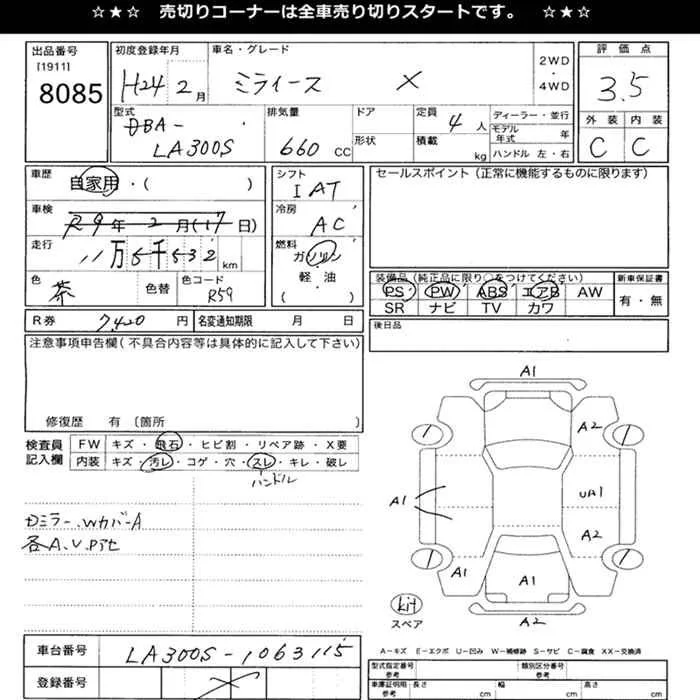 ☆★☆ 売切りコーナーは全車売り切りスタートです。 ☆★☆
出品番号 初度登録年月 車名・グレード 評価点
[1911] 8085 H24 2月 ミライース X 2WD・4WD 3.5
型式 排気量 ドア 定員 4人 ディーラー・並行 外装 内装
DBA-
LA300S 660 CC 形状 積載 kg モデル年式 年 ハンドル 左・右 C C
車歴 自家用・( ) シフト IAT セールスポイント(正常に機能するものに限ります)
車検 R9年2月(17日) 冷房 AC
走行 11万5千532 km 燃料 ガソリン
軽・油
( )
色 茶 色替 色コード R59
装備品(純正品に限り○をつけてください) 新車保証書
PS PW ABS エアB AW 有・無
SR ナビ TV カワ
R券 7420円 名変通知期限 月 日 後日品
注意事項申告欄(不具合内容等は具体的に記入して下さい)
修復歴 有〔箇所 〕
検査員記入欄 FW キズ・飛石・ヒビ割・リペア跡・X要
内装 キズ・汚レ・コゲ・穴・スレ・キレ・破レ
ハンドル
Dミラー、Wカバ-A
各A.V.P
A1
A2
UA1
A2
A1
A1
A1
A2
kit
スペア
A-キズ E-エクボ U-凹み W-補修跡 S-サビ C-腐食 XX-交換済
車台番号 LA300S-1063115
登録番号
型式指定番号 参考 類別区分番号 参考
車庫証明用 参考 長さ cm 幅 cm 高さ cm